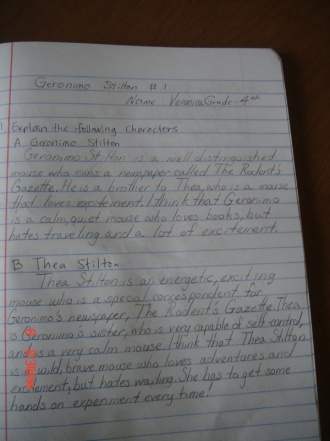 Geronimo Stilton #1
Name: Veronica Grade-4th
1. Explain the following characters
A. Geronimo Stilton
Geronimo Stilton is a well distinguished
mouse who runs a newspaper called The Rodent's
Gazette. He is a brother to Thea, who is a mouse
that loves excitement. I think that Geronimo
is a calm, quiet mouse who loves books, but
hates traveling and a lot of excitement.
B Thea Stilton
Thea Stilton is an energetic, exciting
mouse who is a special correspondent for
Geronimo's newspaper, The Rodent's Gazette. Thea
is Geronimo's sister, who is very capable of self-control,
and is a very calm mouse. I think that Thea Stilton
is a wild, brave mouse who loves adventures and
excitement, but hates waiting. She has to get some
hands on experiment every time!